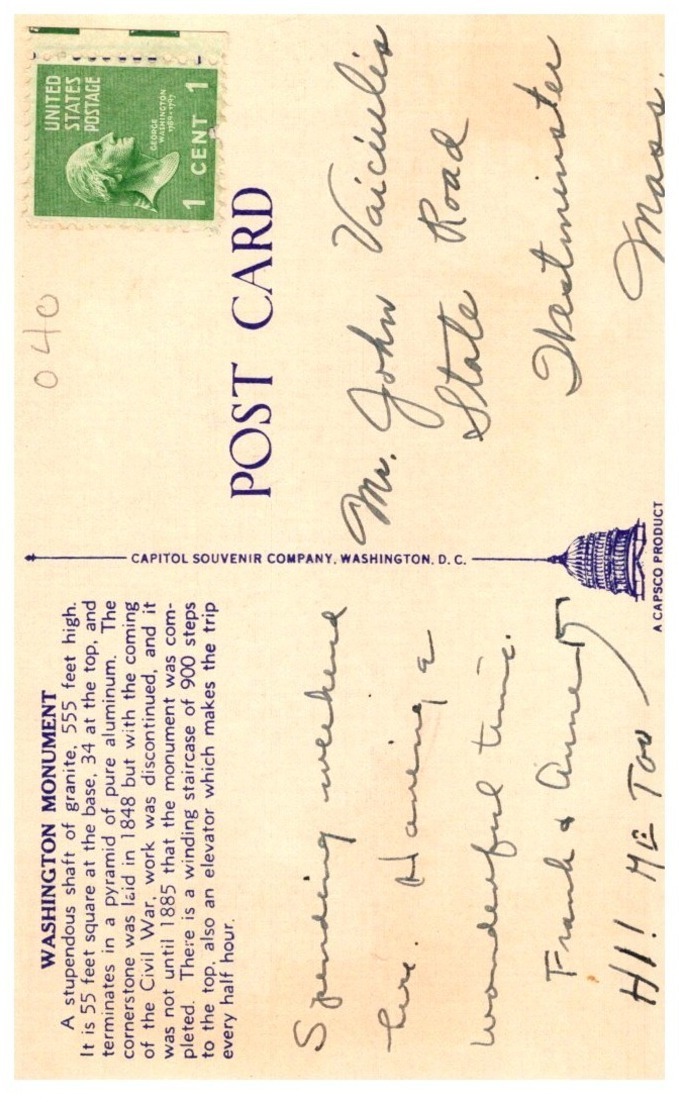 WASHINGTON MONUMENT
A stupendous shaft of granite, 555 feet high.
It is 55 feet square at the base, 34 at the top, and
terminates in a pyramid of pure aluminum. The
cornerstone was laid in 1848 but with the coming
of the Civil War, work was discontinued, and it
was not until 1885 that the monument was com-
pleted. There is a winding staircase of 900 steps
to the top, also an elevator which makes the trip
every half hour.
Spending weekend
here. Having a
wonderful time.
Frank & Anne
HI! ME TOO
CAPITOL SOUVENIR COMPANY, WASHINGTON, D. C.
A CAPSCO PRODUCT
040
UNITED
STATES
POSTAGE
GEORGE
WASHINGTON
1789-1797
1 CENT 1
POST CARD
Mr. John Vaiciulis
State Road
Westminster
Mass.